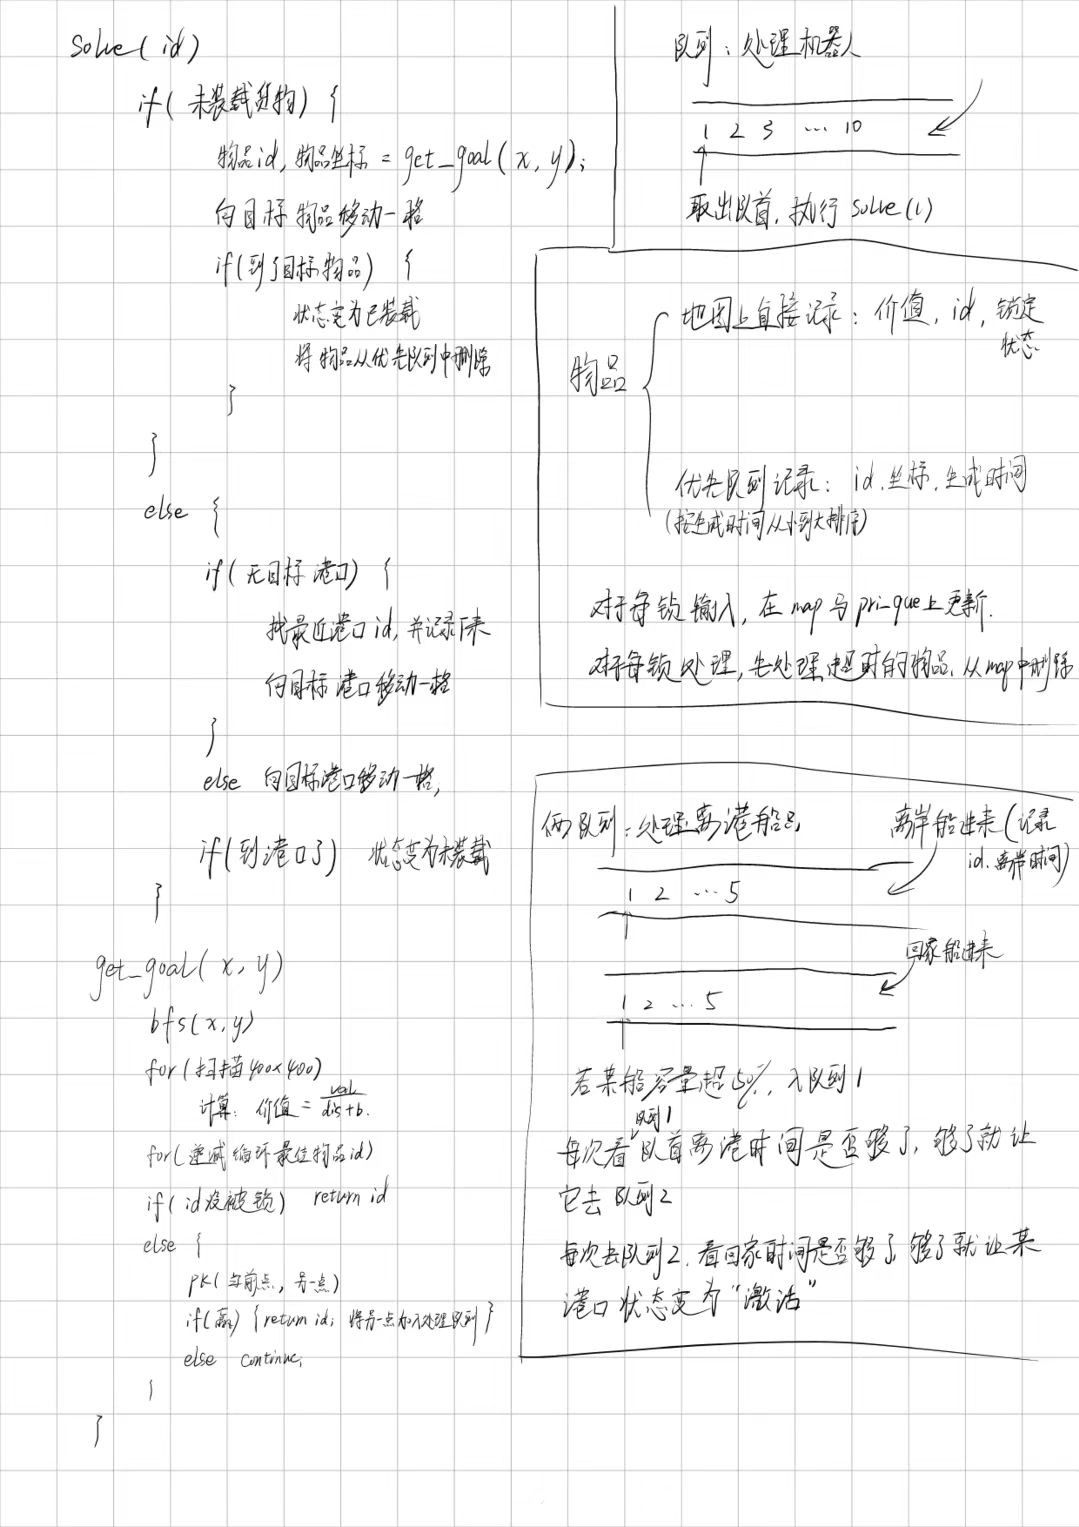 solve(id)
if(未装载货物) {
物品id,物品坐标 = get_goal(x,y);
向目标物品移动一格
if(到了目标物品) {
状态变为已装载
将物品从优先队列中删除
}
}
else {
if(无目标港口) {
找最近港口id,并记录下来
向目标港口移动一格
}
else 向目标港口移动一格,
if(到港口了) 状态变为未装载
}
get_goal(x,y)
bfs(x,y)
for(扫描400×400)
计算: 价值 = val/dis+b.
for(递减循环最佳物品id)
if(id没被锁) return id
else {
PK(当前点,另一点)
if(赢) {return id; 将另一点加入处理队列}
else continue;
}
}
队列:处理机器人
1 2 3 … 10
取出队首,执行 solve(1)
物品
地图上直接记录:价值,id,锁定
状态
优先队列记录: id.坐标.生成时间
(按生成时间从小到大排序)
对于每锁输入,在map与pri-que上更新.
对于每锁处理,先处理超时的物品,从map中删除
俩队列:处理离港船只
离岸船进来(记录
id.离岸时间)
1 2 … 5
回家船进来
1 2 … 5
若某船容量超50%,入队列1
队列1
每次看队首离港时间是否够了,够了就让
它去队列2
每次去队列2.看回家时间是否够了够了就让某
港口状态变为“激活”